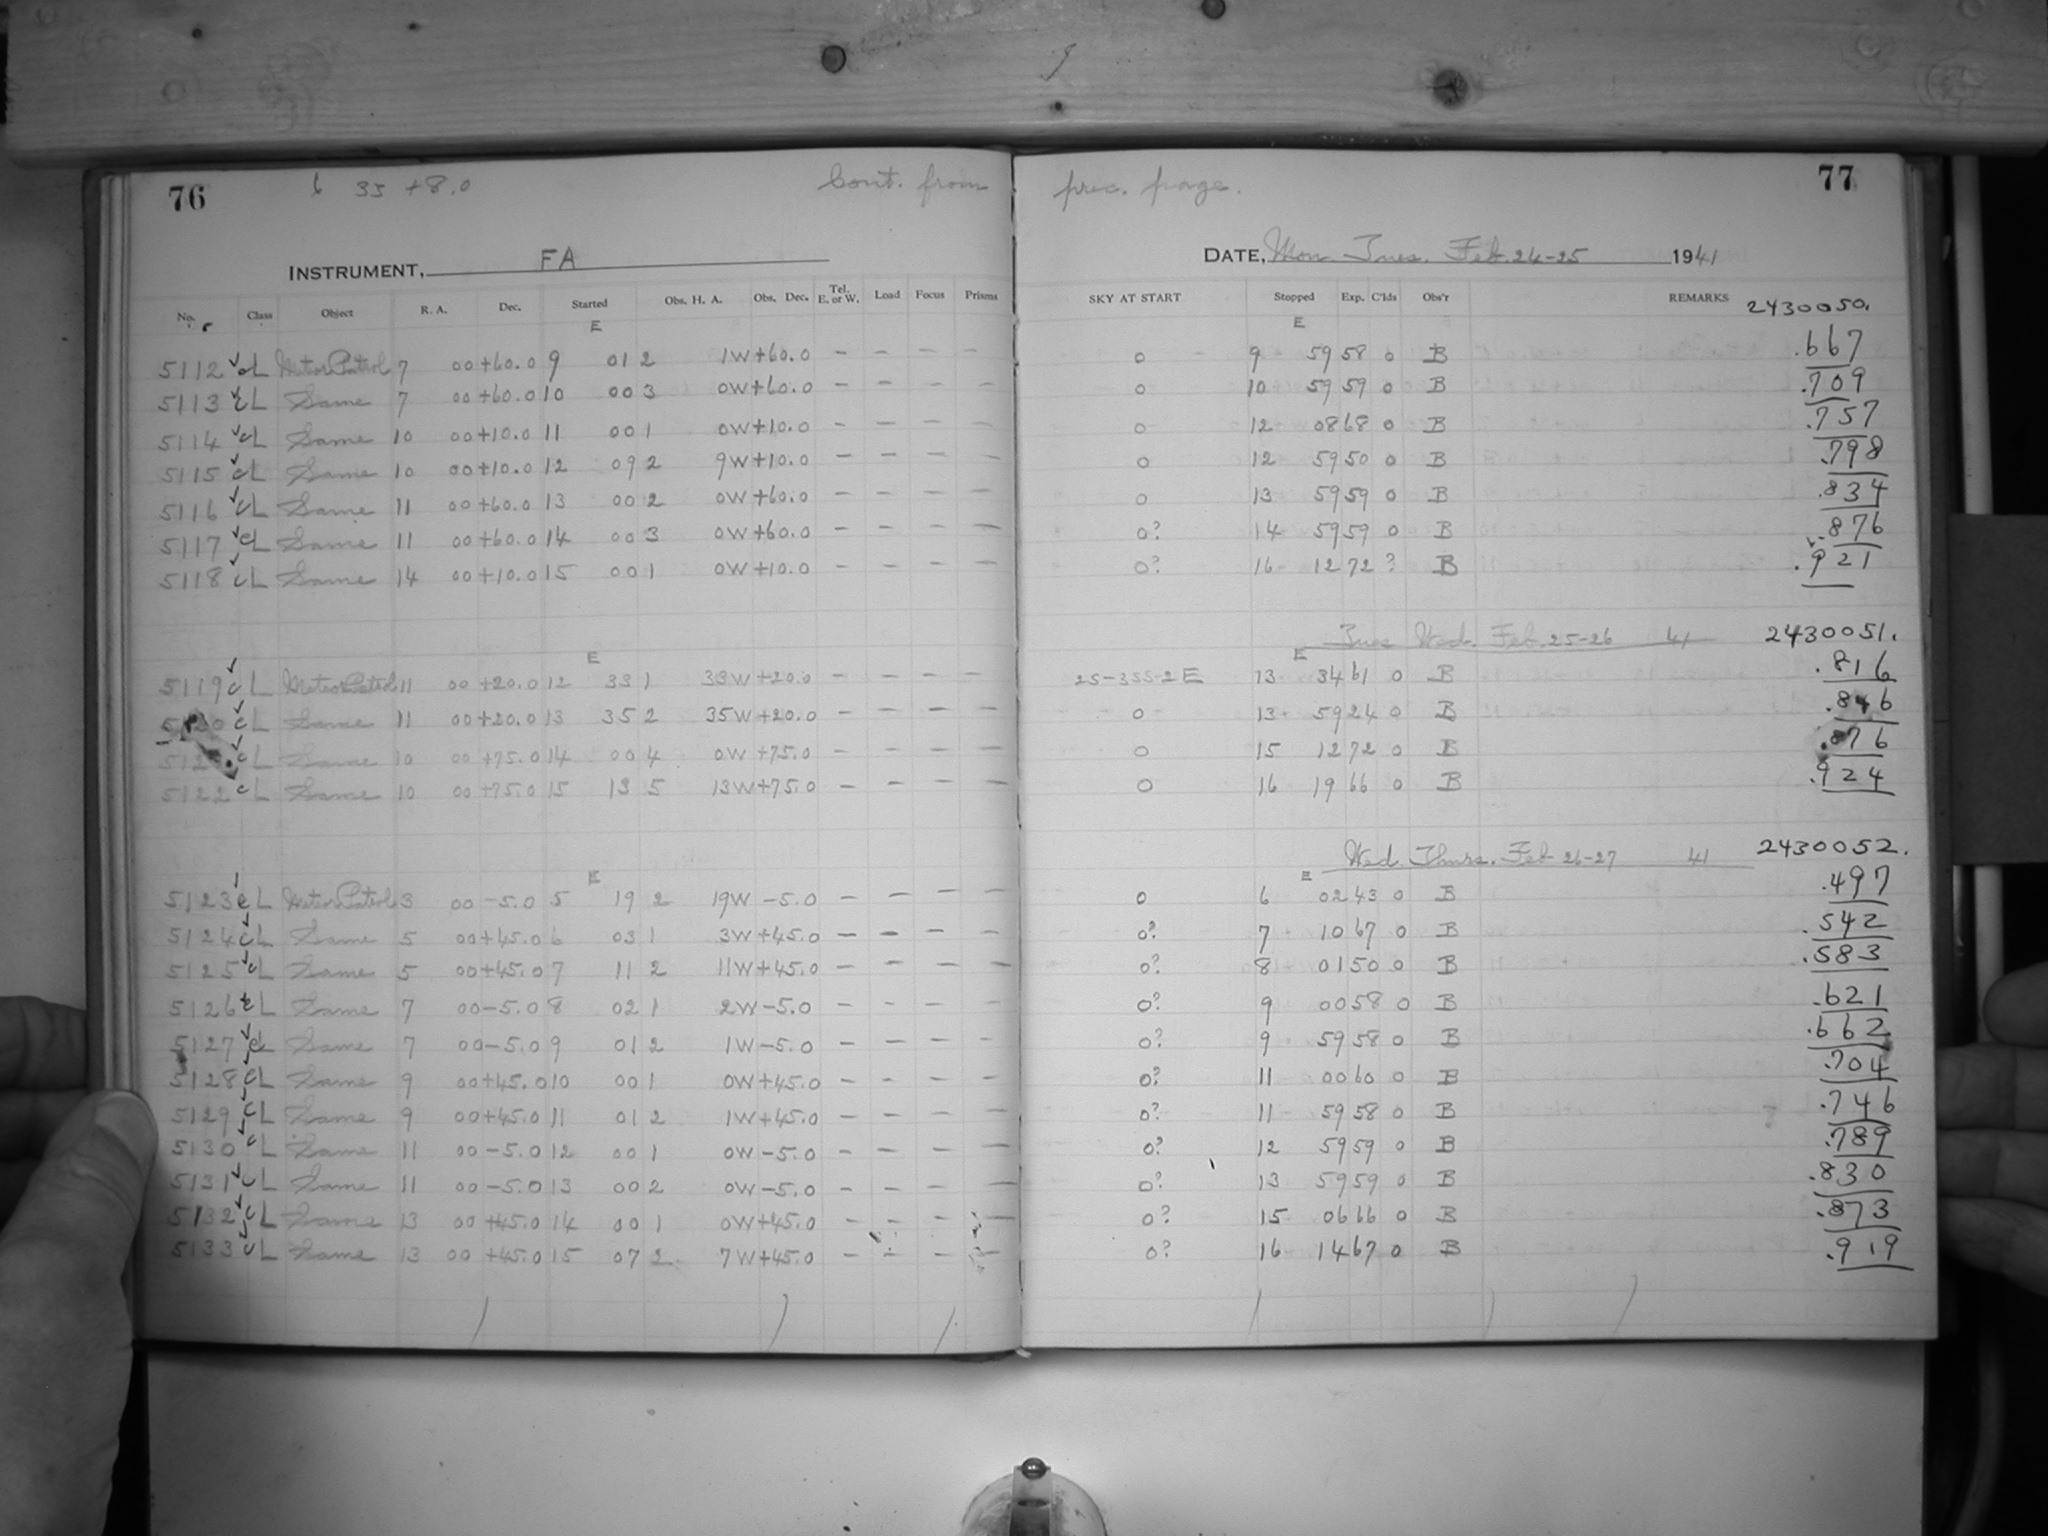 76 6 35 +8.0 Cont. from prec. page. 77
INSTRUMENT, FA DATE, Mon. Tues. Feb. 24-25 1941
No. Class Object R. A. Dec. Started Obs. H. A. Obs. Dec. Tel. E. or W. Load Focus Prisms SKY AT START Stopped Exp. C'lds Obs'r REMARKS 2430050.
E E
5112 cL Meteor Patrol 7 00 +60.0 9 01 2 1W +60.0 – – – – 0 9 59 58 0 B .667
5113 cL Same 7 00 +60.0 10 00 3 0W +60.0 – – – – 0 10 59 59 0 B .709
5114 cL Same 10 00 +10.0 11 00 1 0W +10.0 – – – – 0 12 08 68 0 B .757
5115 cL Same 10 00 +10.0 12 09 2 9W +10.0 – – – – 0 12 59 50 0 B .798
5116 cL Same 11 00 +60.0 13 00 2 0W +60.0 – – – – 0 13 59 59 0 B .834
5117 cL Same 11 00 +60.0 14 00 3 0W +60.0 – – – – 0? 14 59 59 0 B .876
5118 cL Same 14 00 +10.0 15 00 1 0W +10.0 – – – – 0? 16 12 72 ? B .921
Tues Wed. Feb. 25-26 41 2430051.
E E
5119 cL Meteor Patrol 11 00 +20.0 12 33 1 33W +20.0 – – – – 25-355-2E 13 34 61 0 B .816
5120 cL Same 11 00 +20.0 13 35 2 35W +20.0 – – – – 0 13 59 24 0 B .846
cL Same 10 00 +75.0 14 00 4 0W +75.0 – – – – 0 15 12 72 0 B .876
5122 cL Same 10 00 +75.0 15 13 5 13W +75.0 – – – – 0 16 19 66 0 B .924
Wed. Thurs. Feb 26-27 41 2430052.
E E
5123 cL Meteor Patrol 3 00 -5.0 5 19 2 19W -5.0 – – – – 0 6 02 43 0 B .497
5124 cL Same 5 00 +45.0 6 03 1 3W +45.0 – – – – 0? 7 10 67 0 B .542
5125 cL Same 5 00 +45.0 7 11 2 11W +45.0 – – – – 0? 8 01 50 0 B .583
5126 cL Same 7 00 -5.0 8 02 1 2W -5.0 – – – – 0? 9 00 58 0 B .621
5127 cL Same 7 00 -5.0 9 01 2 1W -5.0 – – – – 0? 9 59 58 0 B .662
5128 cL Same 9 00 +45.0 10 00 1 0W +45.0 – – – – 0? 11 00 60 0 B .704
5129 cL Same 9 00 +45.0 11 01 2 1W +45.0 – – – – 0? 11 59 58 0 B .746
5130 cL Same 11 00 -5.0 12 00 1 0W -5.0 – – – – 0? 12 59 59 0 B .789
5131 cL Same 11 00 -5.0 13 00 2 0W -5.0 – – – – 0? 13 59 59 0 B .830
5132 cL Same 13 00 +45.0 14 00 1 0W +45.0 – – – – 0? 15 06 66 0 B .873
5133 cL Same 13 00 +45.0 15 07 2 7W +45.0 – – – – 0? 16 14 67 0 B .919